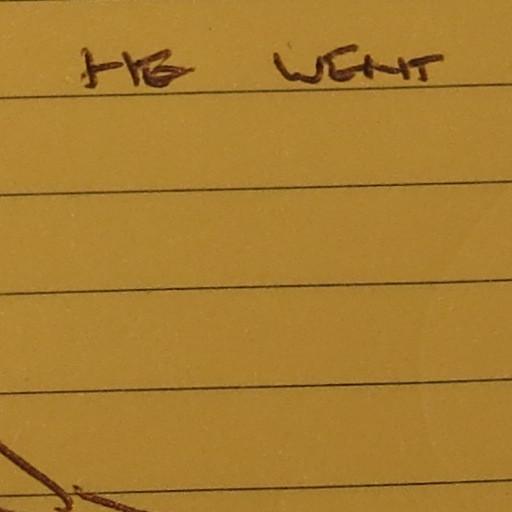 HE WENT